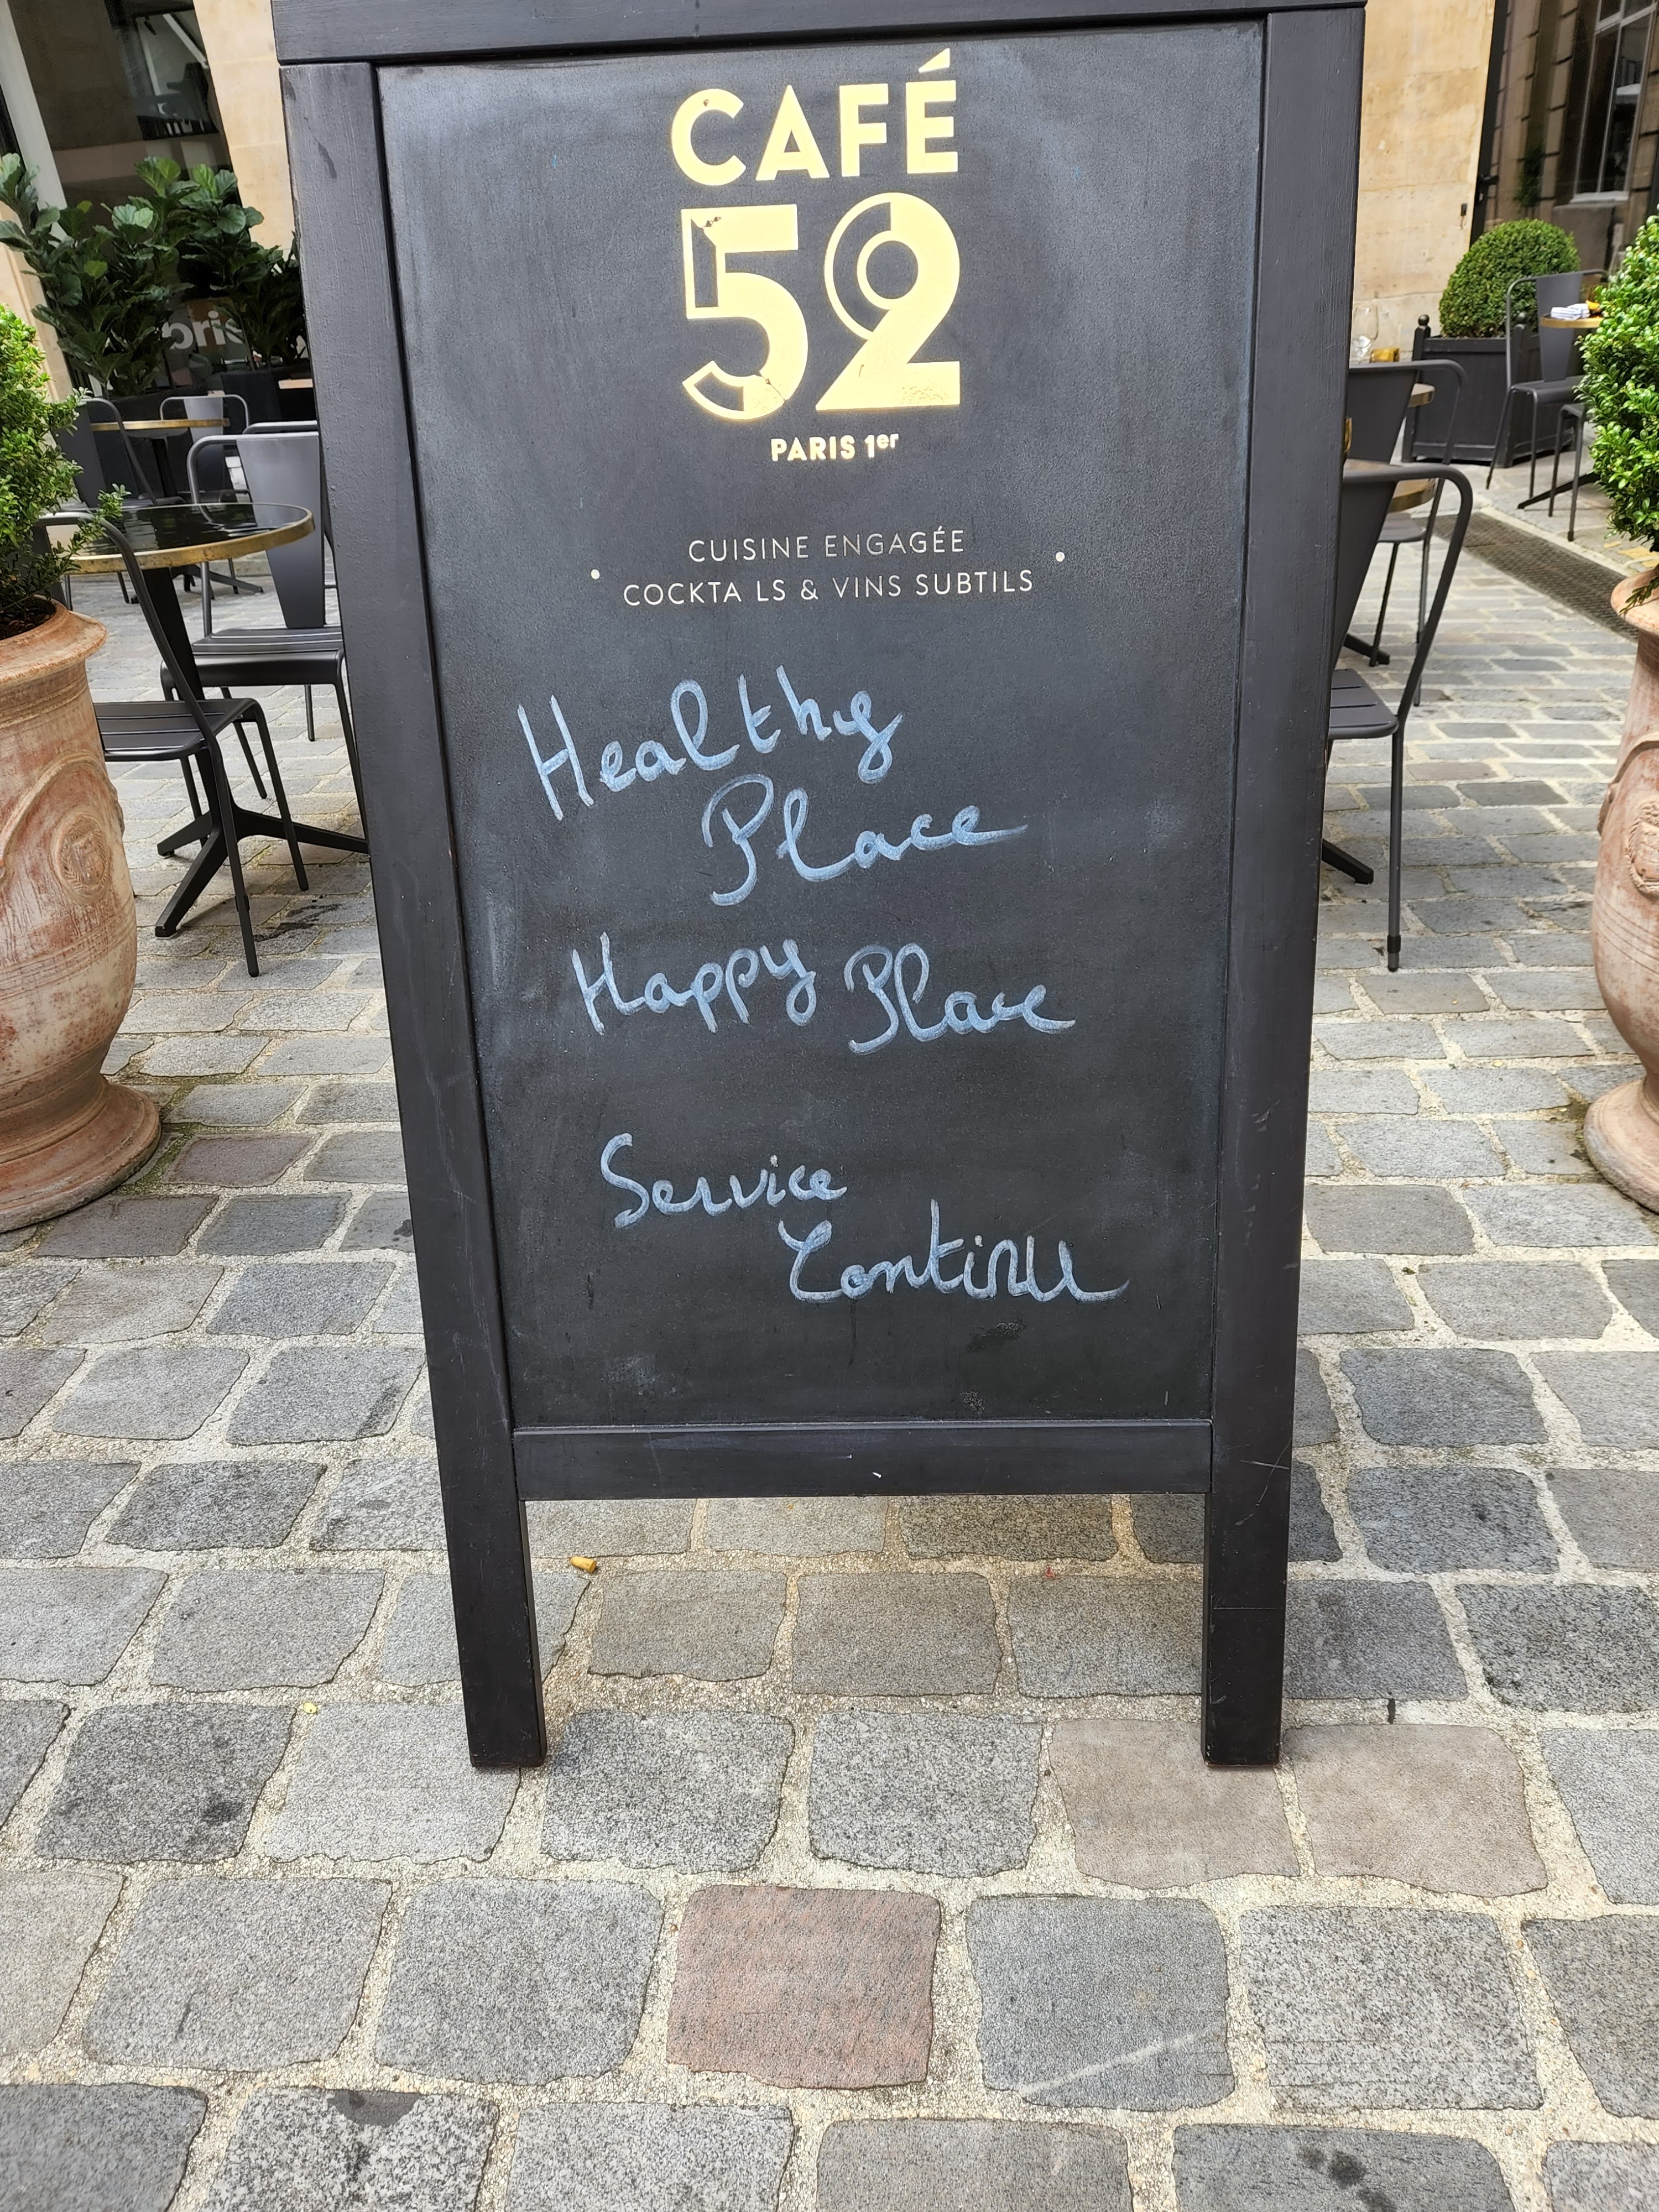 CAFÉ
52
PARIS 1er
CUISINE ENGAGÉE
COCKTA LS & VINS SUBTILS
Healthy
Place
Happy Place
Service
Continu